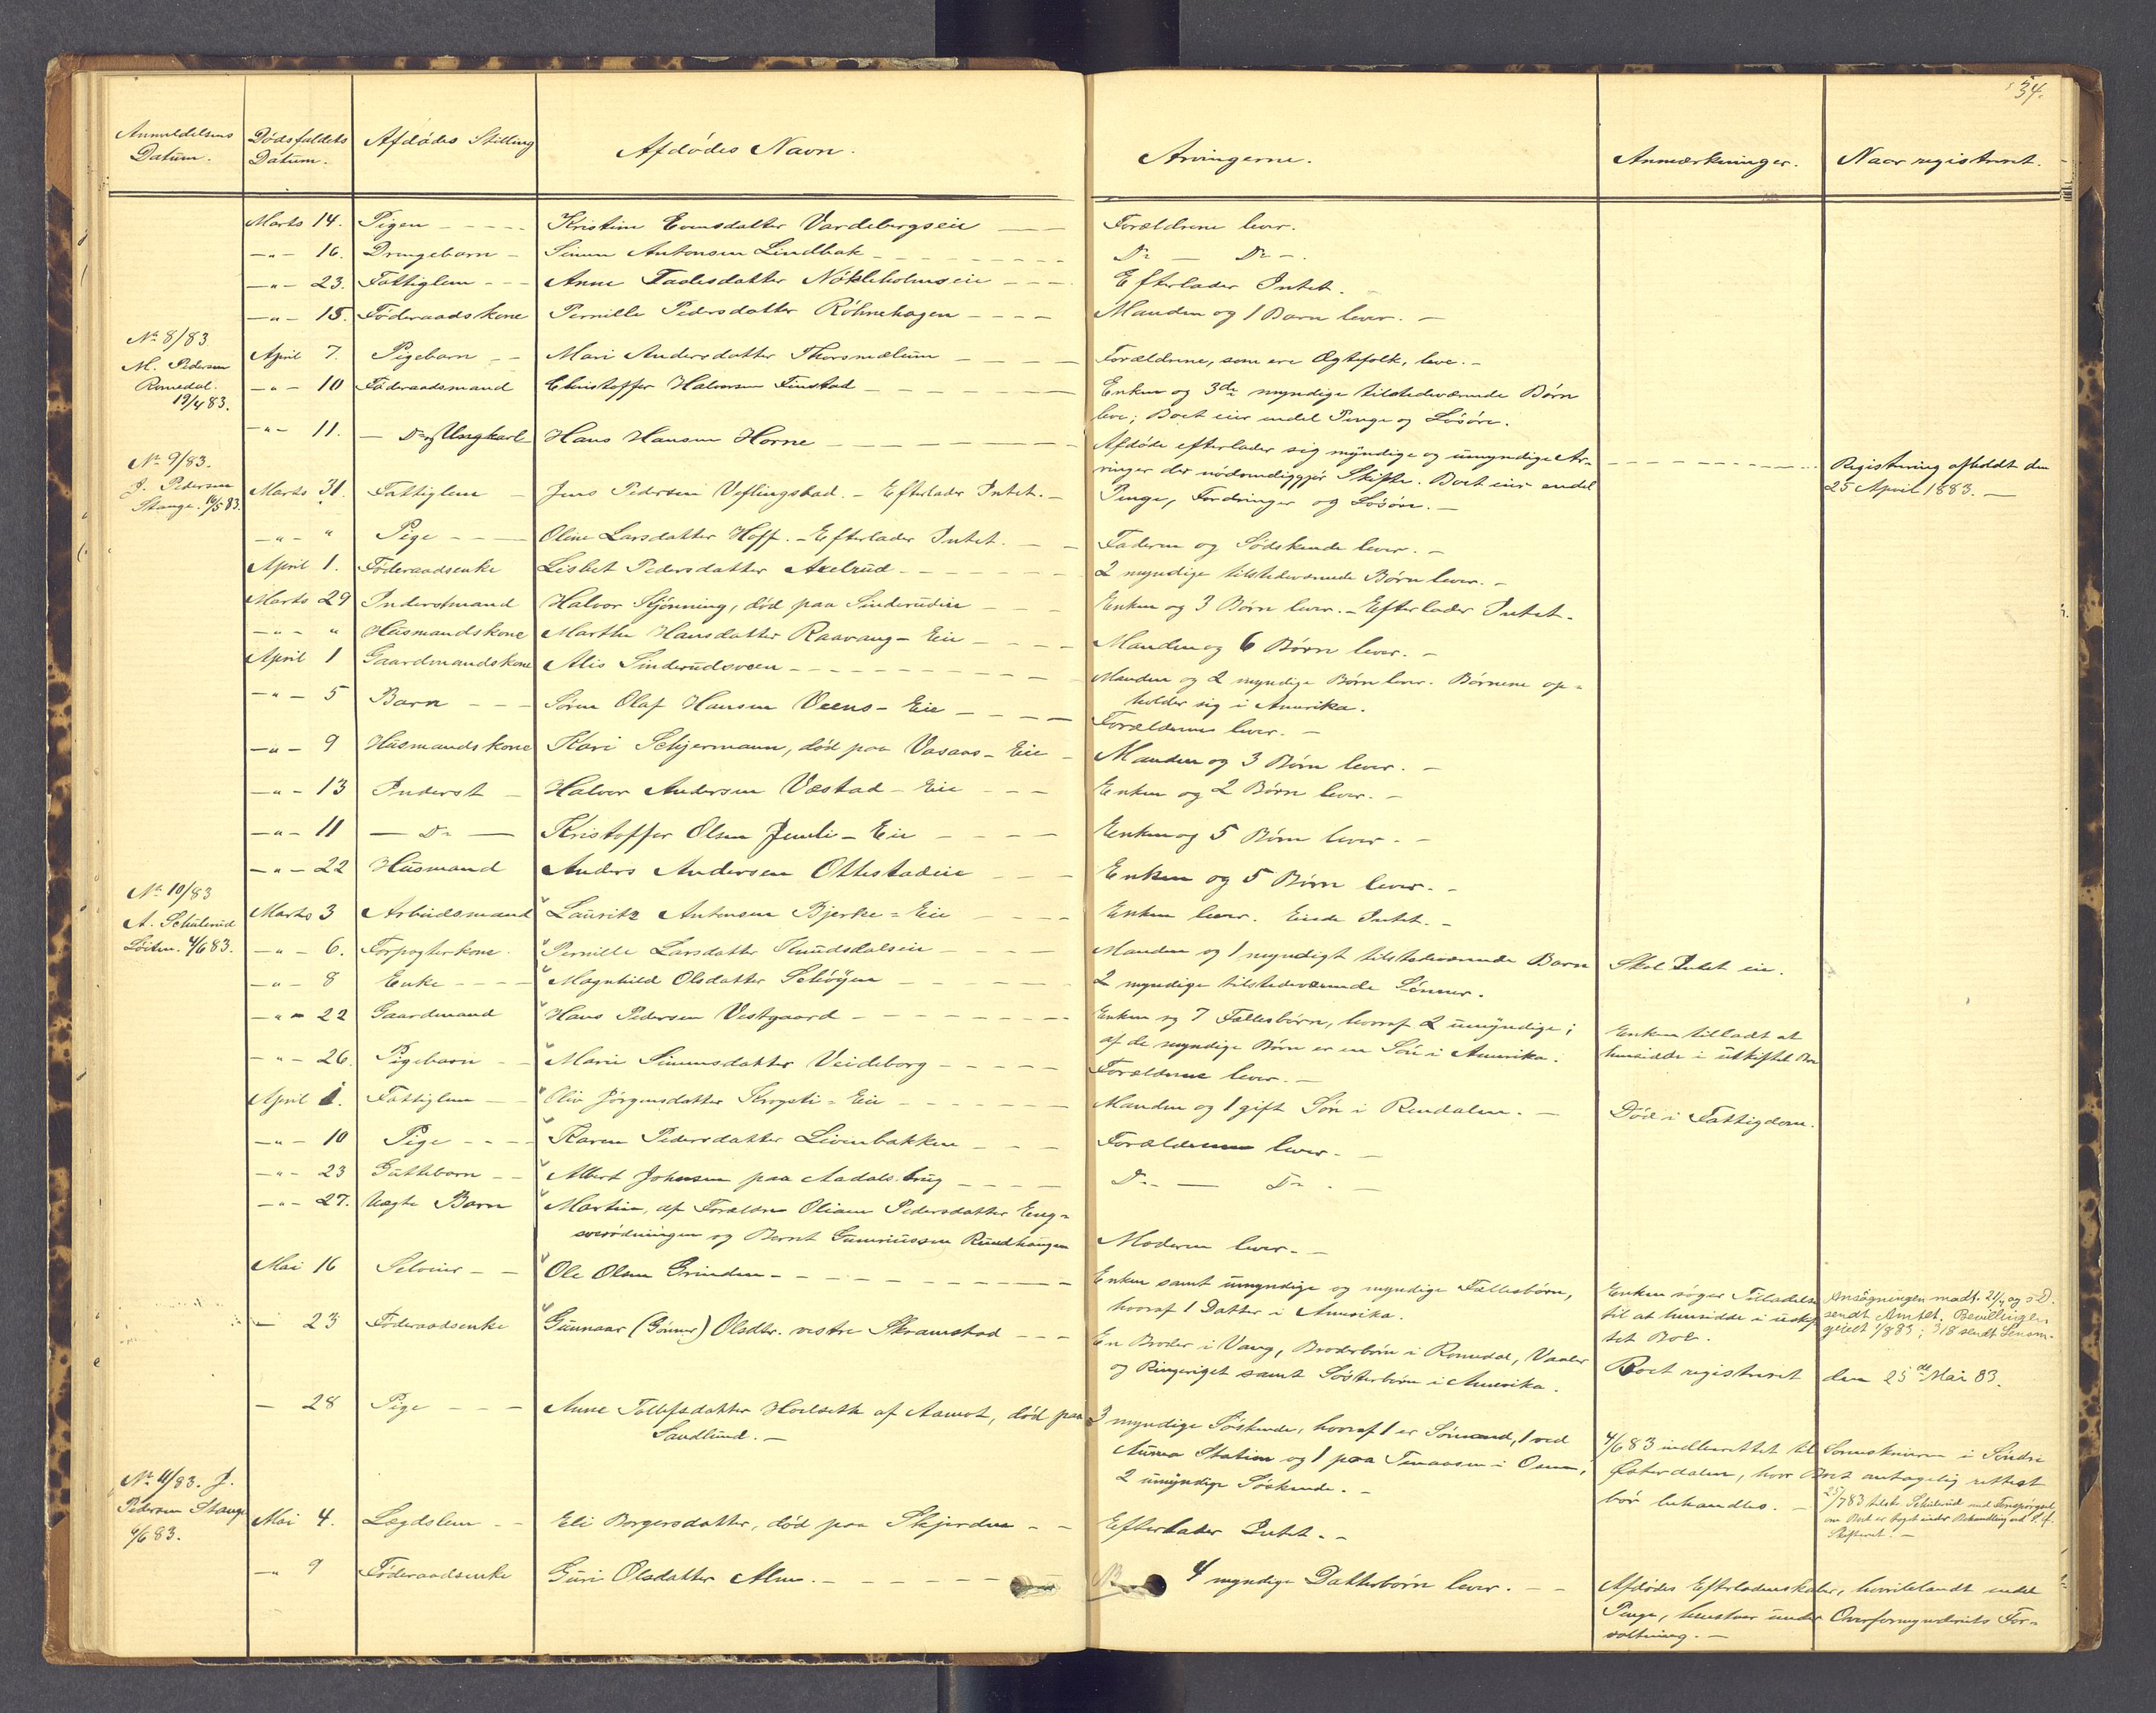 54.
Anmeldelsens Datum. Dødsfaldets Datum. Afdødes Stilling Afdødes Navn. Arvingerne. Anmærkninger. Naar registreret.
Marts 14. Pigen Kristine Evensdatter Vardebergseie Forældrene lever.
—"— 16. Drengebarn Simen Antonsen Lindbak Do — Do —.
—"— 23. Fattiglem Anne Taalesdatter Nökleholmseie Efterlader Intet.
—"— 15. Föderaadskone Pernille Pedersdatter Röhnehagen Manden og 1 Barn lever. —
No 8/83
M. Pedersen
Romedal.
19/4 83.
April 7. Pigebarn Mari Andersdatter Thorsmælum Forældrene, som ere Ægtefolk, leve. —
—"— 10 Föderaadsmand Christoffer Halvorsen Finstad Enken og 3de myndige tilstedeværende Börn
leve; Boet eier endel Penge og Lösöre.
—"— 11. — Do og Ungkarl Hans Hansen Horne Afdöde efterlader sig myndige og umyndige Ar-
vinger der nödvendiggjör Skifte. Boet eier endel
Penge, Fordringer og Lösöre. —
Registrering afholdt den
25 April 1883. —
No 9/83.
J. Pedersen
Stange. 16/5 83.
Marts 31. Fattiglem Jens Pedersen Veflingstad. — Efterlader Intet. —
—"— " Pige Oline Larsdatter Hoff. — Efterlader Intet. Faderen og Södskende lever. —
April 1. Föderaadsenke Lisbet Pedersdatter Axelrud 2 myndige tilstedeværende Börn lever. —
Marts 29 Inderstmand Halvor Stjönning, död paa Sinderudeie Enken og 3 Börn lever. — Efterlader Intet.
—"— " Husmandskone Marthe Hansdatter Raavang-Eie Manden og 6 Börn lever. —
April 1 Gaardmandskone Alis Sinderudsveen Manden og 2 myndige Börn lever. Börnene op-
holder sig i Amerika.
—"— 5 Barn Sören Olaf Hansen Veens-Eie Forældrene lever. —
—"— 9 Husmandskone Kari Schjermann, död paa Vasaas-Eie Manden og 3 Börn lever. —
—"— 13 Inderst Halvor Andersen Væstad-Eie Enken og 2 Börn lever. —
—"— 11 — Do — Kristoffer Olsen Jemli-Eie Enken og 5 Börn lever. —
—"— 22 Husmand Anders Andersen Ottestadeie Enken og 5 Börn lever. —
No 10/83
A. Schulerud
Löiten. 4/6 83.
Marts 3 Arbeidsmand Lauritz Antonsen Bjerke-Eie Enken lever. Eiede Intet. —
—"— 6. Forpagterkone. Pernille Larsdatter Knudsdalseie Manden og 1 myndigt tilstedeværende Barn Skal Intet eie.
—"— 8 Enke Magnhild Olsdatter Schöyen 2 myndige tilstedeværende Sönner.
—"— 22 Gaardmand Hans Pedersen Vestgaard Enken og 7 Fællesbörn, hvoraf 2 umyndige;
af de myndige Börn er en Sön i Amerika.
Enken tilladt at
hensidde i uskiftet Bo
—"— 26. Pigebarn Marie Simensdatter Veideborg Forældrene lever. —
April 1. Fattiglem Oliv Jörgensdatter Skrogsti-Eie Manden og 1 gift Sön i Rendalen. — Död i Fattigdom.
—"— 10 Pige Karen Pedersdatter Livenbakken Forældrene lever. —
—"— 23 Guttebarn Albert Johnsen paa Aadals brug Do — Do —
—"— 27. Uægte Barn Martin, af Forældre Oliane Pedersdatter Eng-
sveödningen og Bernt Guneriussen Rundhaugen Moderen lever. —
Mai 16 Selveier Ole Olsen Grinden Enken samt umyndige og myndige Fællesbörn,
hvoraf 1 Datter i Amerika.
Enken söger Tilladelse
til at hensidde i uskif
tet Bo.
Ansögningen modt. 21/7 og s.D.
sendt Amtet. Bevillingen
gieet 1/8 83; 3/8 sendt Lensm.
— 23 Föderaadsenke Gunnaar (Gönner) Olsdtr. vestre Skramstad En Broder i Vang, Broderbörn i Romedal, Vaaler
og Ringeriget samt Sösterbörn i Amerika.
Boet registreret den 25de Mai 83.
— 28 Pige Anne Tollefsdatter Hoelseth af Aamot, död paa
Sandlund. —
3 myndige Söskende, hvoraf 1 er Sömand, 1 ved
Auma Station og 1 paa Tenaasen i Osen,
2 umyndige Söskende. —
4/6 83 indberettet til Sorenskriveren i Söndre
Österdalen, hvor Boet antagelig rettest
bör behandles. —
25/7 83 tilskr. Schulerud med Forespörgsel
om Boet er taget under Behandling ved S.Ö.
Skifteret. —
No 11/83. J.
Pedersen Stange
6/6 83.
Mai 4. Lægdslem Eli Borgersdatter, död paa Skjerden Efterlader Intet. —
—" 9 Föderaadsenke Guri Olsdatter Alm. 4 myndige Datterbörn lever. —
Afdödes Efterladenskaber, hvoriblandt endel
Penge, henstaar under Overformynderiets For-
valtning. —